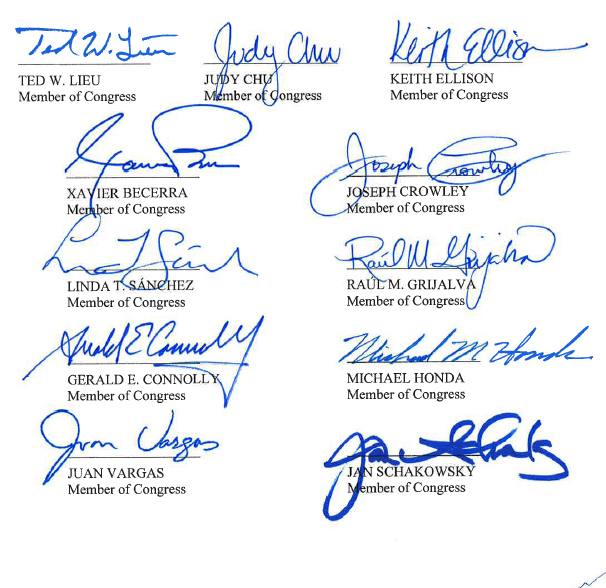 Ted W. Lieu Judy Chu Keith Ellison
TED W. LIEU JUDY CHU KEITH ELLISON
Member of Congress Member of Congress Member of Congress
Joseph Crowley
XAVIER BECERRA JOSEPH CROWLEY
Member of Congress Member of Congress
Raúl M. Grijalva
LINDA T. SÁNCHEZ RAÚL M. GRIJALVA
Member of Congress Member of Congress
Gerald E. Connolly Michael M Honda
GERALD E. CONNOLLY MICHAEL HONDA
Member of Congress Member of Congress
Juan Vargas Jan Schakowsky
JUAN VARGAS JAN SCHAKOWSKY
Member of Congress Member of Congress